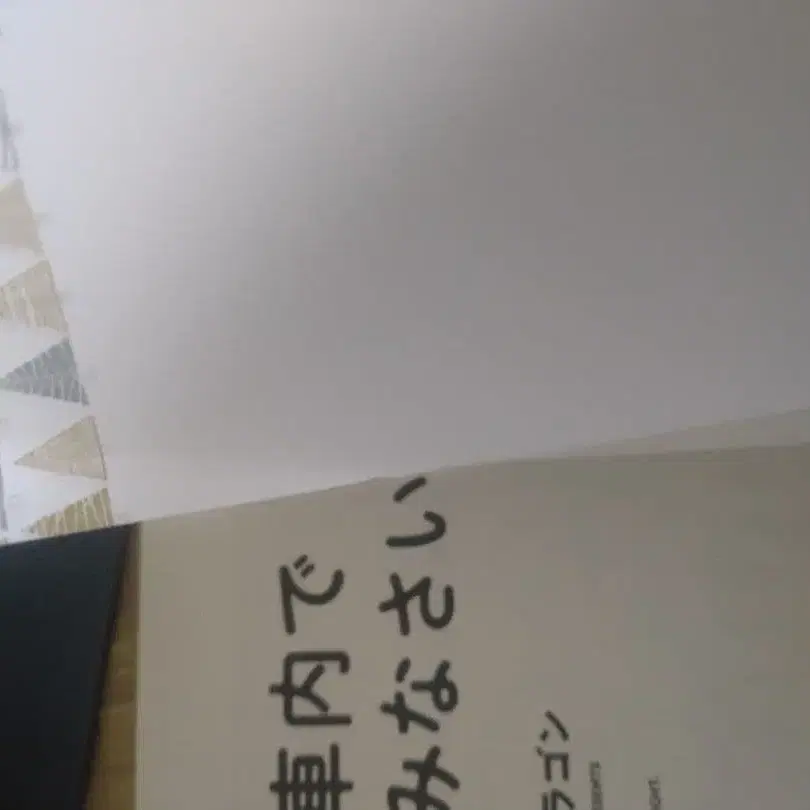 車内で
みなさい
ラゴン